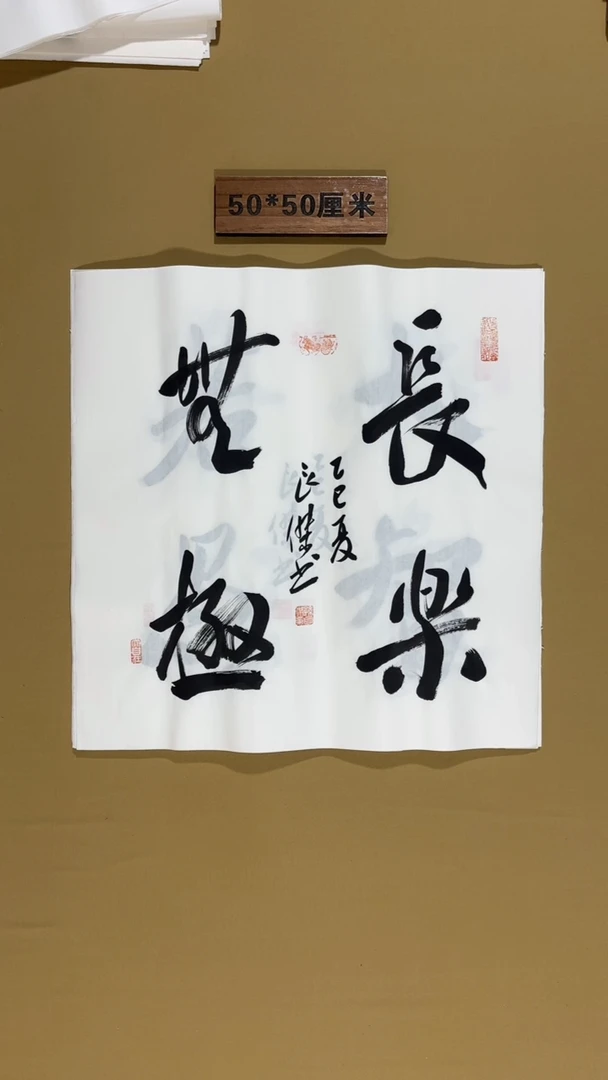 50*50厘米
長樂
無極
乙巳夏
良傑书